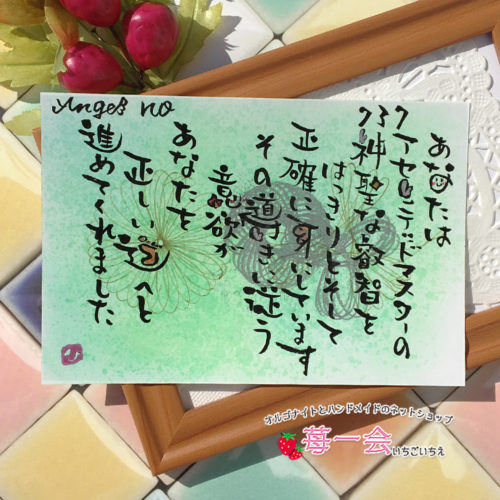 Angel NO
あなたは
アセンデッドマスターの
神聖な叡智を
はっきりとそして
正確に耳にしています
その導きに従う
意欲が
あなたを
正しい道へと
進めてくれました
オルゴナイトとハンドメイドのネットショップ
苺一会
いちごいちえ